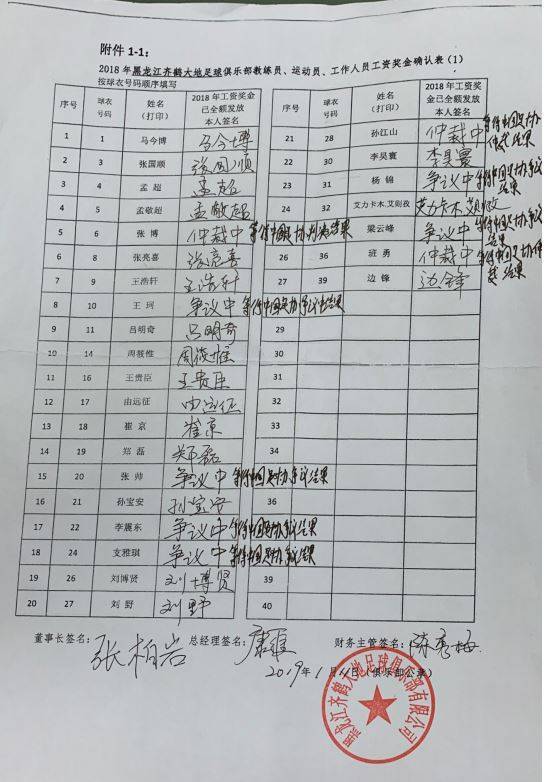 附件 1-1:
2018 年黑龙江齐鹤大地足球俱乐部教练员、运动员、工作人员工资奖金确认表(1)
按球衣号码顺序填写
序号 球衣号码 姓名(打印) 2018 年工资奖金已全额发放本人签名
1 1 马今博 马今博
2 3 张国顺 张国顺
3 4 孟 超 孟超
4 5 孟敬超 孟敬超
5 6 张 博 仲裁中 等待中国足协 结果
6 8 张亮嘉
7 9 王浩轩 王浩轩
8 10 王 珂 争议中 等待中国足协争议结果
9 11 吕明奇 吕明奇
10 14 周筱惟 周筱惟
11 16 王贵臣 王贵臣
12 17 由远征 由远征
13 18 崔 京 崔京
14 19 郑 磊 郑磊
15 20 张 帅 争议中 等待中国足协争议结果
16 21 孙宝安 孙宝安
17 22 李晨东 争议中 等待中国足协争议结果
18 24 支雅琪 争议中 等待中国足协争议结果
19 26 刘博贤 刘博贤
20 27 刘 野 刘野
序号 球衣号码 姓名(打印) 2018 年工资奖金已全额发放本人签名
21 28 孙红山 仲裁中 等待中国足协仲裁结果
22 30 李昊寰 李昊寰
23 31 杨 锦 争议中 等待中国足协争议结果
24 32 艾力卡木.艾则孜 艾力卡木.
梁云峰 争议中 等待中国足协争议结果
26 36 班 勇 仲裁中 等待中国足协仲裁结果
27 39 边 锋 边锋
29
30
31
32
33
34
36
39
40
董事长签名: 张柏岩 总经理签名: 财务主管签名: 陈秀梅
2019年1月11日(俱乐部公章)
黑龙江齐鹤大地足球俱乐部有限公司